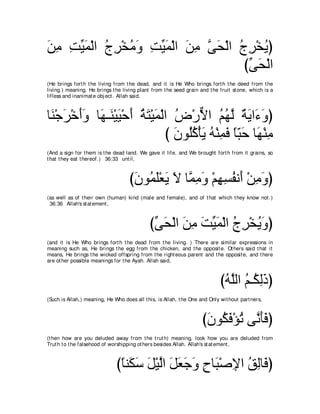 (يُخْرِجُ الْحَيَّ مِنَ الْمَيِّتِ وَمُخْرِجُ الْمَيِّتِ مِنَ
الْحَيِّ)
(He brings forth the living from the dead, and it is He Who brings forth the deed from the
living.) meaning, He brings the living plant from the seed grain and the fruit stone, which is a
lifless and inanimate object. Allah said,
(وَءَايَةٌ لَّهُمُ الاٌّرْضُ الْمَيْتَةُ أَحْيَيْنَـهَا وَأَخْرَجْنَا
مِنْهَا حَبّاً فَمِنْهُ يَأْكُلُونَ )
(And a sign for them is the dead land. We gave it life, and We brought forth from it grains, so
that they eat thereof.) 36:33 until,
(وَمِنْ أَنفُسِهِمْ وَمِمَّا لاَ يَعْلَمُونَ)
(as well as of their own (human) kind (male and female), and of that which they know not.)
36:36 Allah's statement,
(وَيُخْرِجُ الْمَيِّتَ مِنَ الْحَيِّ)
(and it is He Who brings forth the dead from the living. ) There are similar expressions in
meaning such as, He brings the egg from the chicken, and the opposite. Others said that it
means, He brings the wicked offspring from the righteous parent and the opposite, and there
are other possible meanings for the Ayah. Allah said,
(ذَلِكُـمُ اللَّهُ)
(Such is Allah,) meaning, He Who does all this, is Allah, the One and Only without partners,
(فَأَنَّى تُؤْفَكُونَ)
(then how are you deluded away from the truth) meaning, look how you are deluded from
Truth to the falsehood of worshipping others besides Allah. Allah's statement,
(فَالِقُ الإِصْبَاحِ وَجَعَلَ الَّيْلَ سَكَناً)